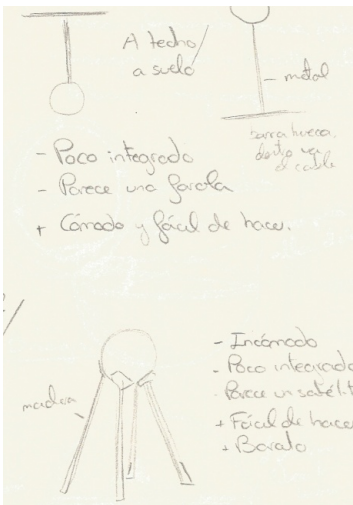 A techo
a suelo
- metal
barra hueca.
dentro va
el cable
- Poco integrado
- Parece una farola
+ Cómodo y fácil de hacer.
madera
- Incómodo
- Poco integrado
- Parece un satélit
+ Fácil de hacer
+ Barato